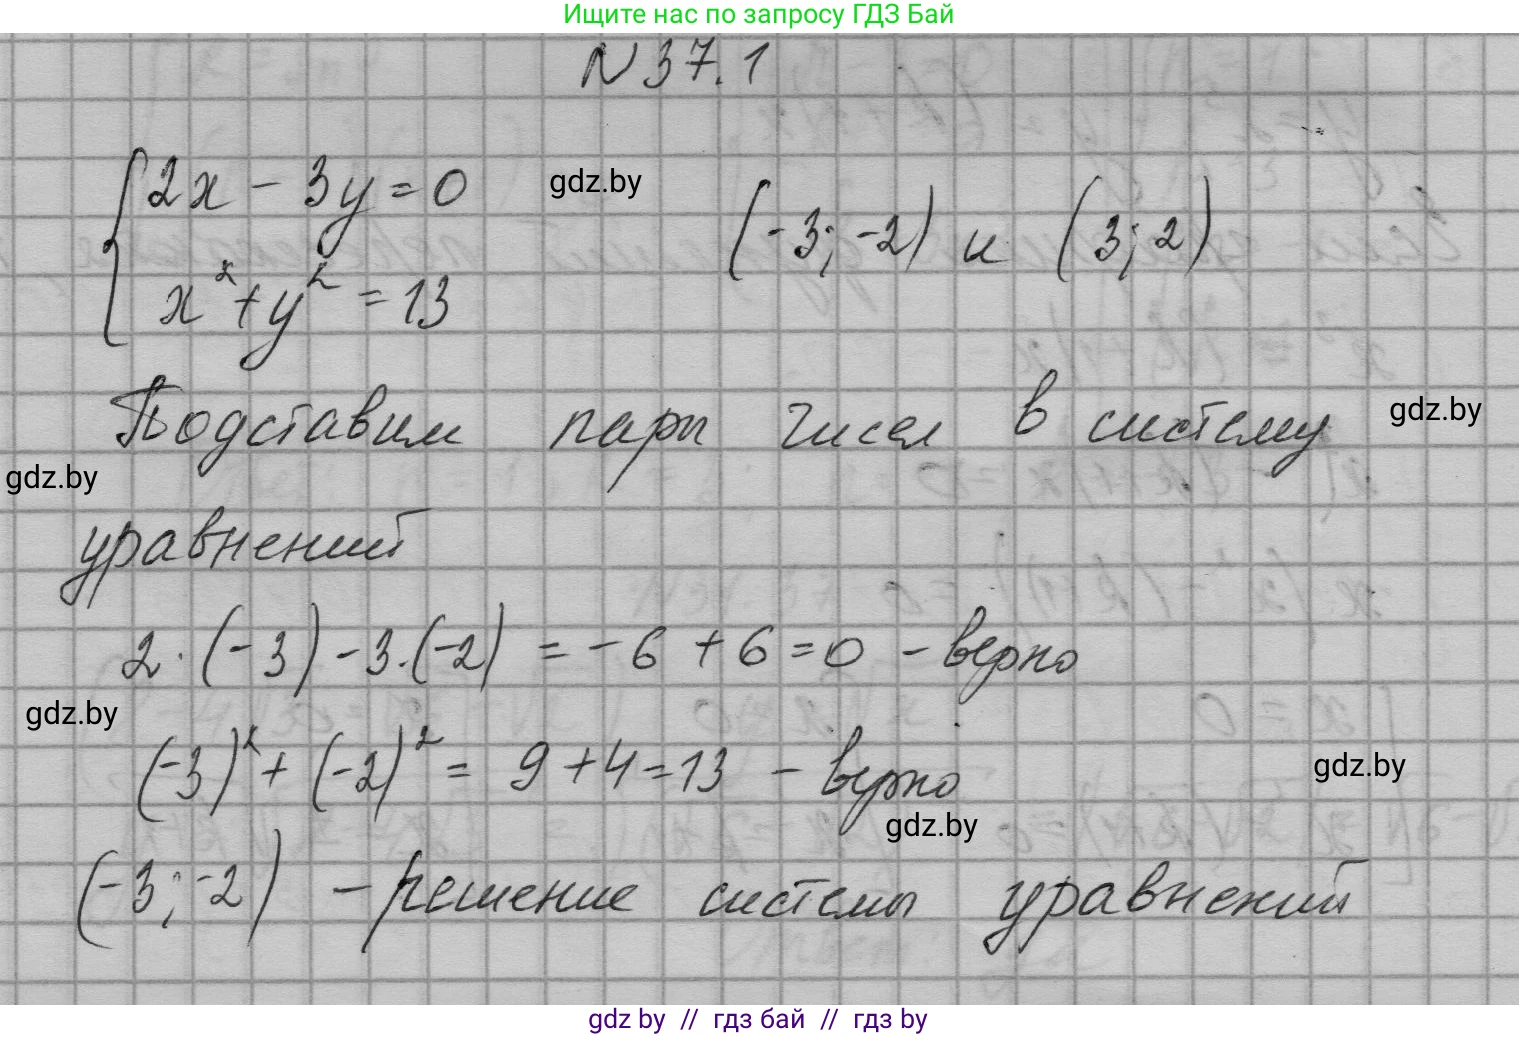 Ищите нас по запросу ГДЗ Бай
N 37.1
2x - 3y = 0
gdz.by
(-3; -2) и (3; 2)
x² + y² = 13
Подставим пары чисел в систему
gdz.by
gdz.by
уравнений
2 · (-3) - 3 · (-2) = -6 + 6 = 0 - верно
gdz.by
(-3)² + (-2)² = 9 + 4 = 13 - верно
gdz.by
gdz.by
(-3; -2) - решение системы уравнений
gdz by // гдз бай // гдз by